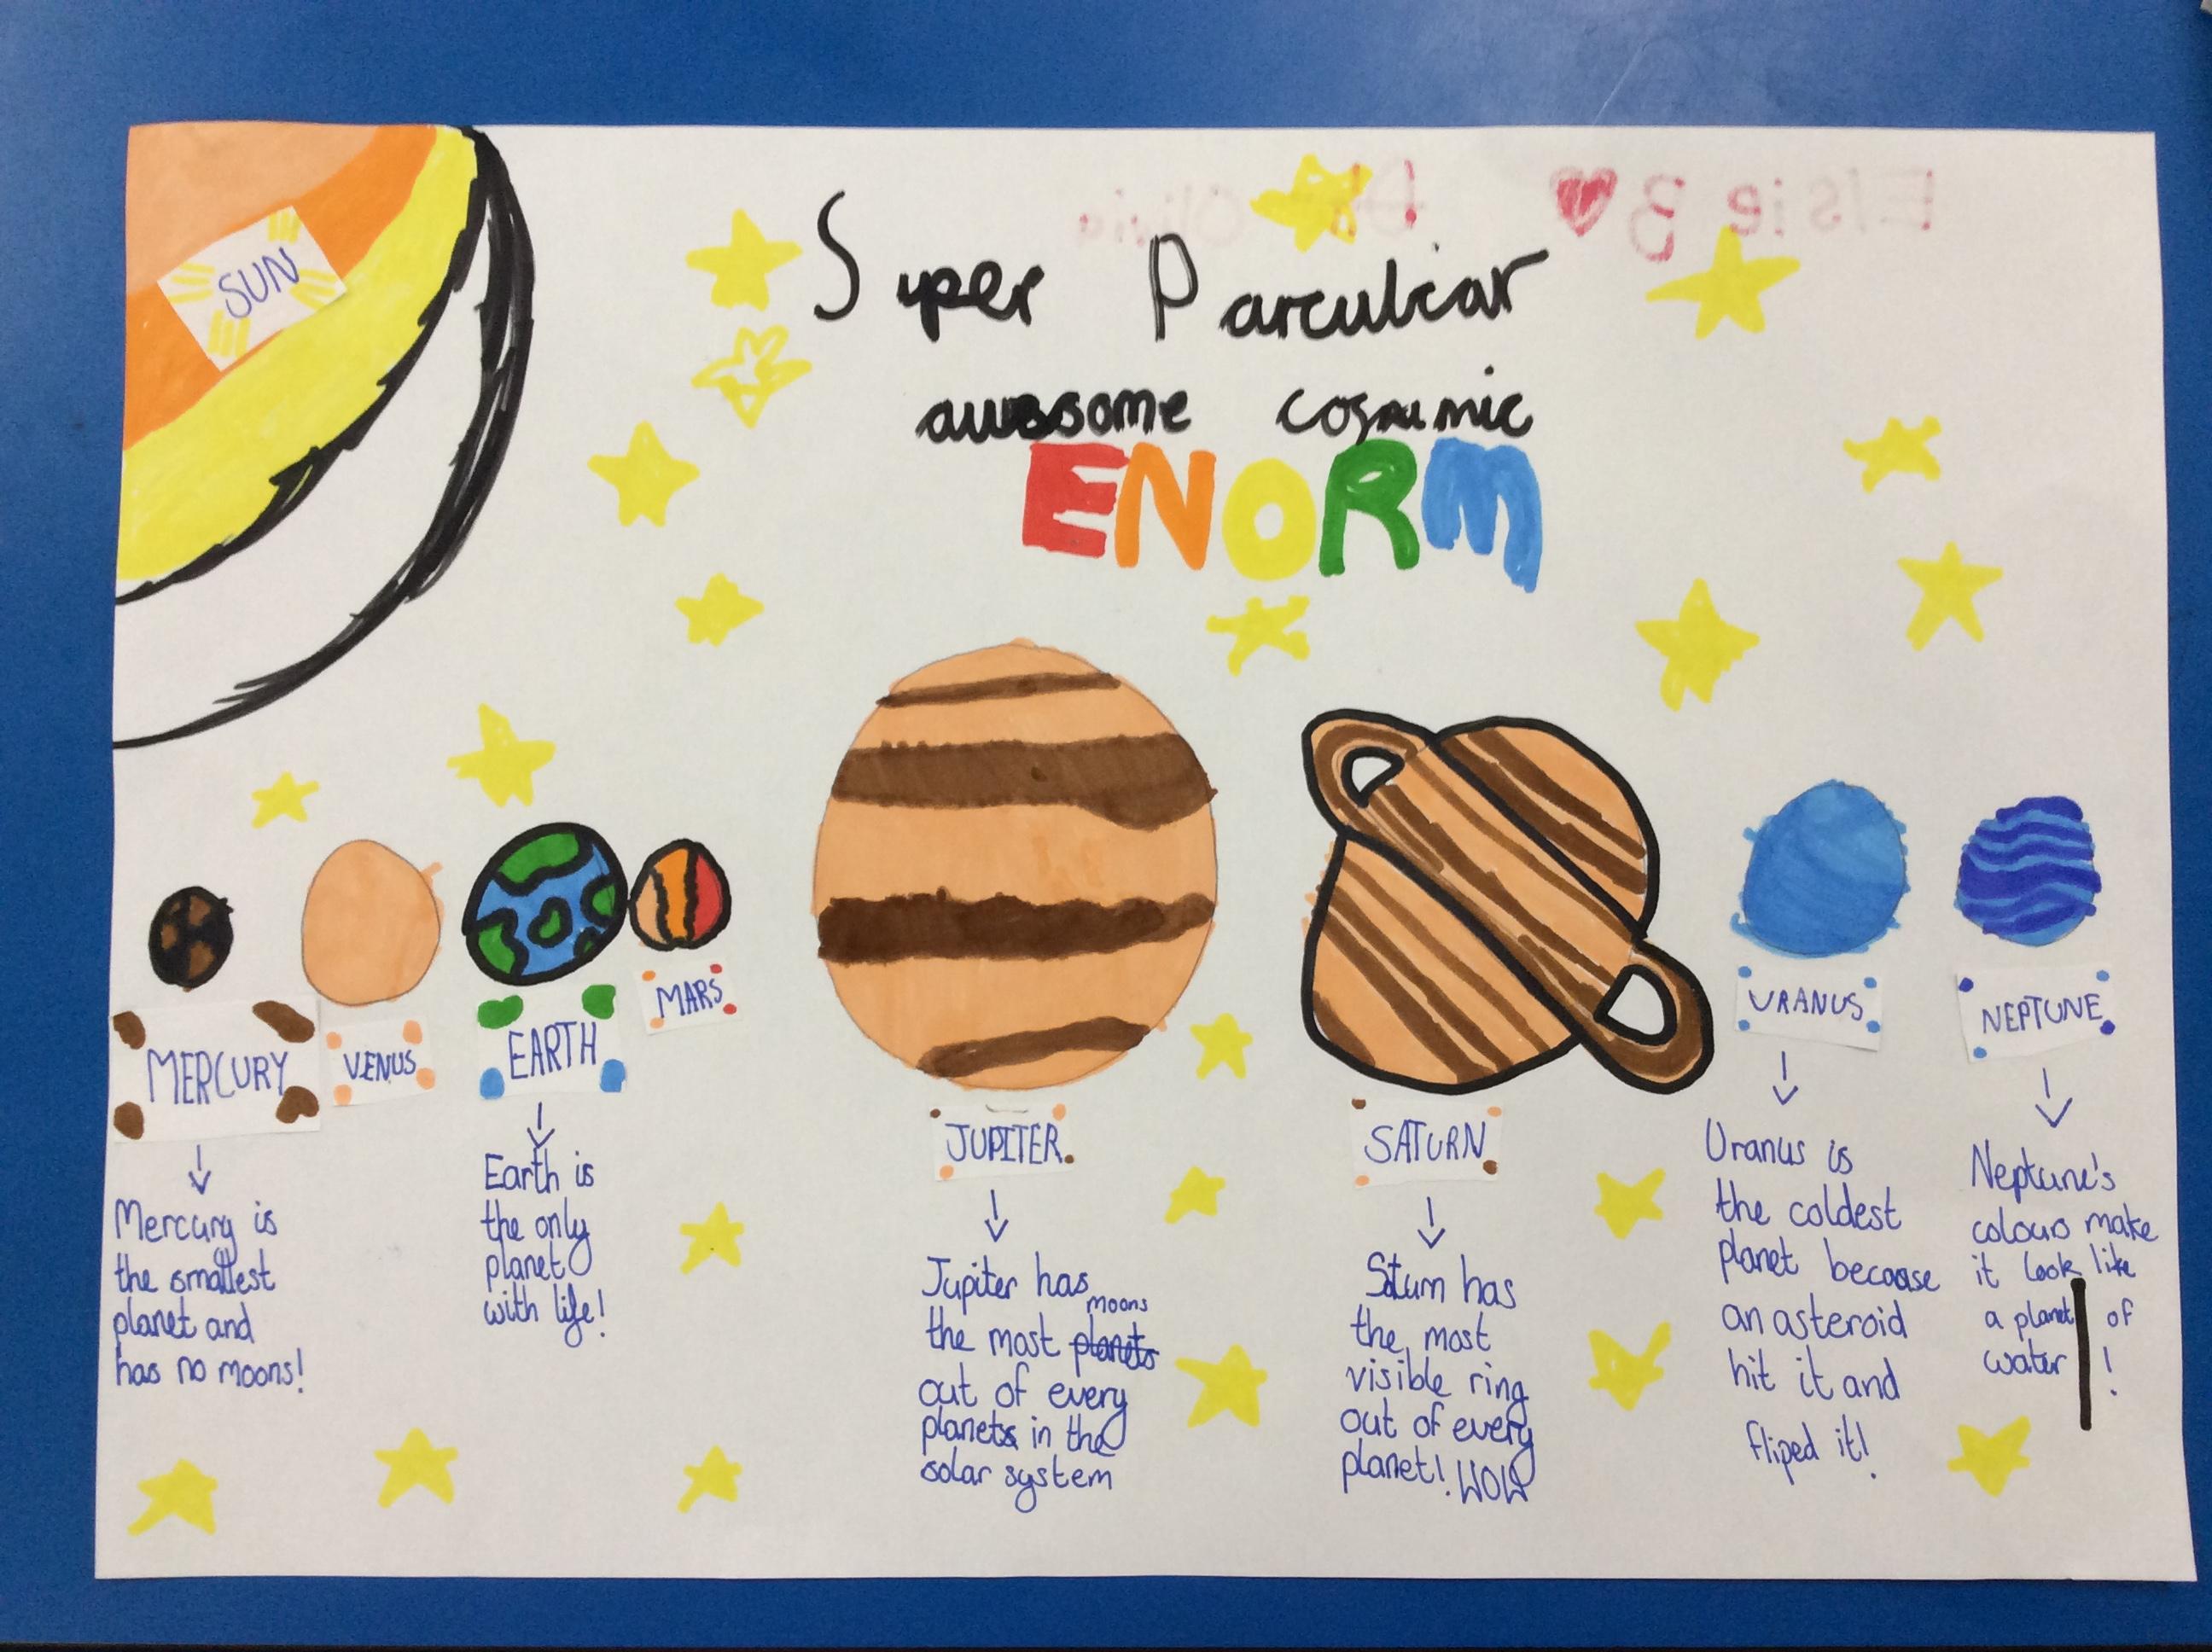 Elsie B Olivia
Super Parculiar
awesome cosmic
ENORM
SUN
MERCURY
VENUS
EARTH
MARS
JUPITER
SATURN
URANUS
NEPTUNE
Mercury is
the smallest
planet and
has no moons!
Earth is
the only
planet
with life!
Jupiter has
moons
the most planets
out of every
planets in the
solar system
Saturn has
the most
visible ring
out of every
planet! WOW
Uranus is
the coldest
planet because
an asteroid
hit it and
fliped it!
Neptune's
colours make
it look like
a planet of
water !